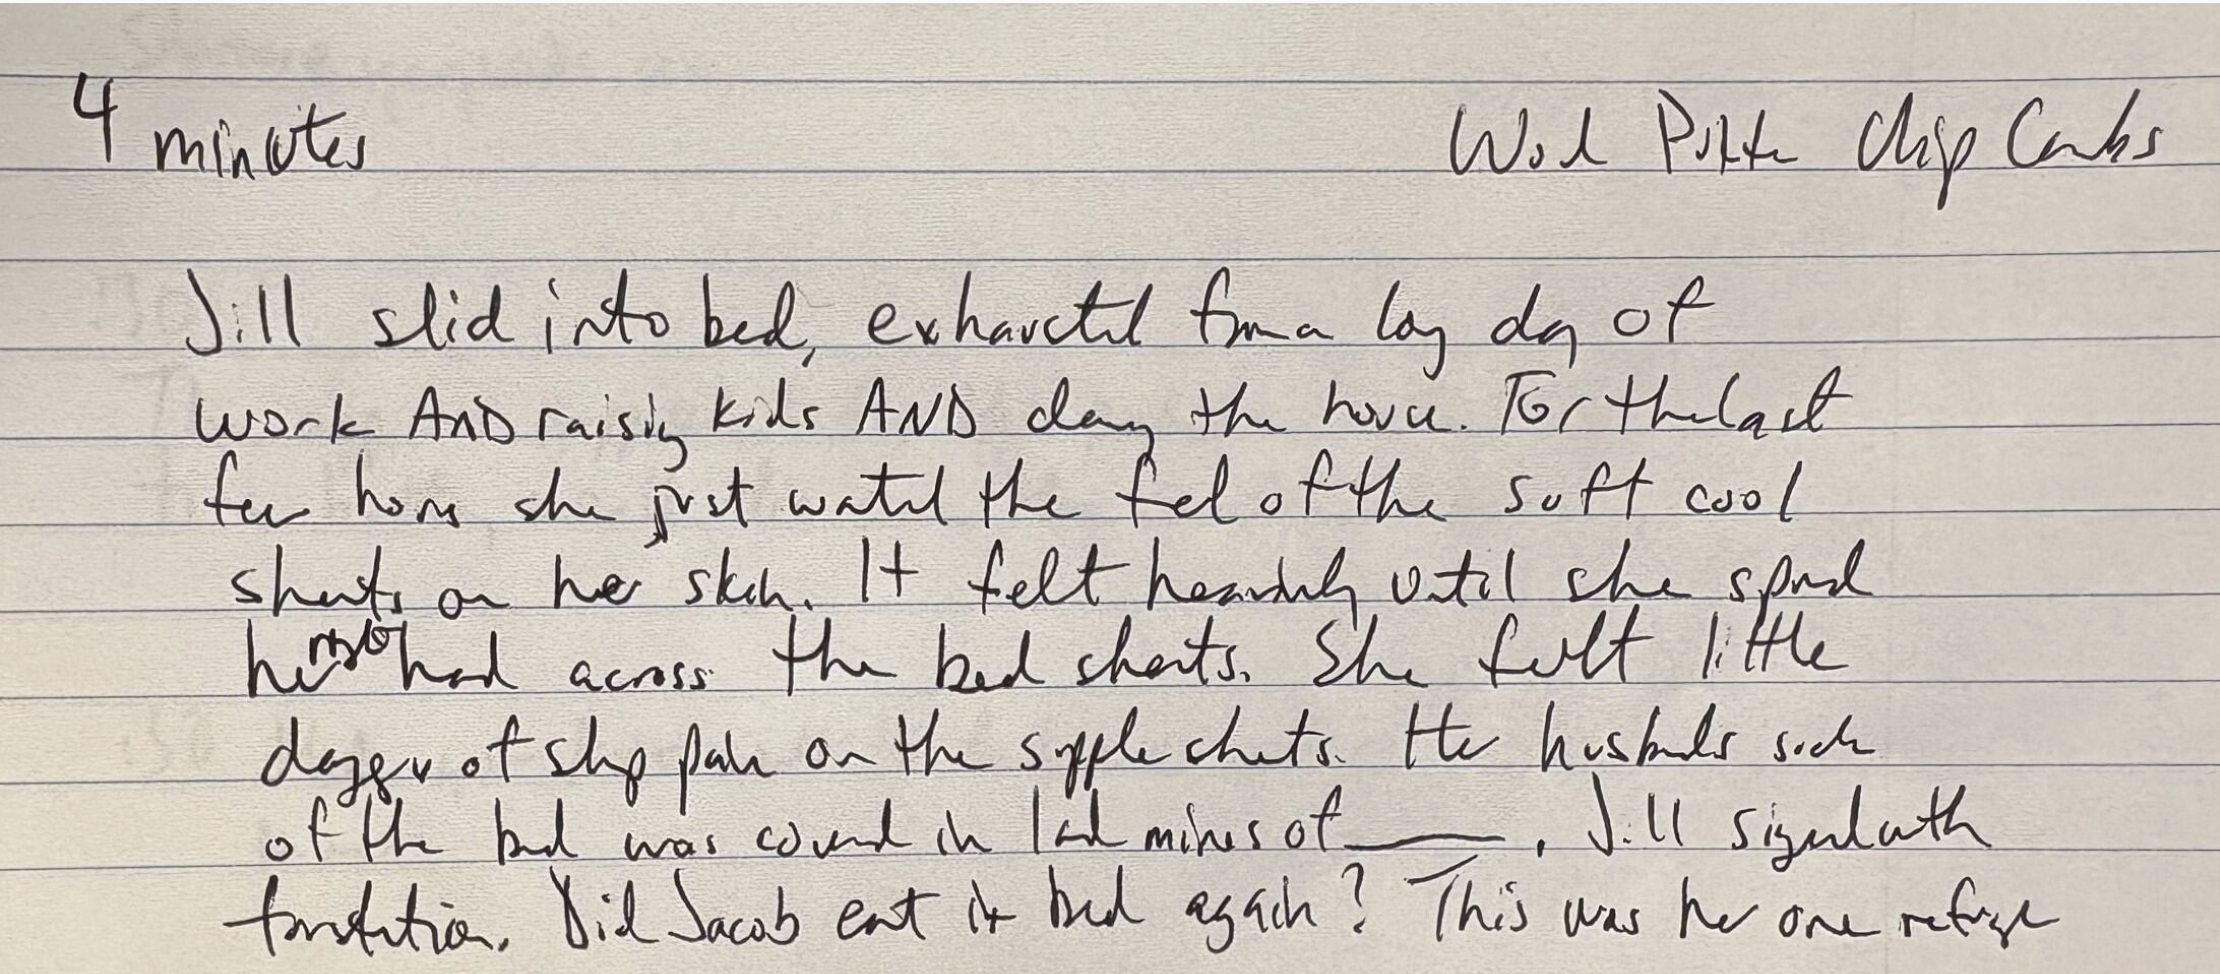 4 minutes
Chip
Jill slid into bed, exhausted from a long day of
work AND raising kids AND clean the house. For the last
few hours she just wanted the feel of the soft cool
sheets on her skin. It felt heavenly until she spread
her right hand across the bed sheets. She felt little
dagger of sharp pain on the supple sheets. Her husbands side
of the bed was covered in land mines of ____. Jill signed with
frustration. Did Jacob eat in bed again? This was her one refuge